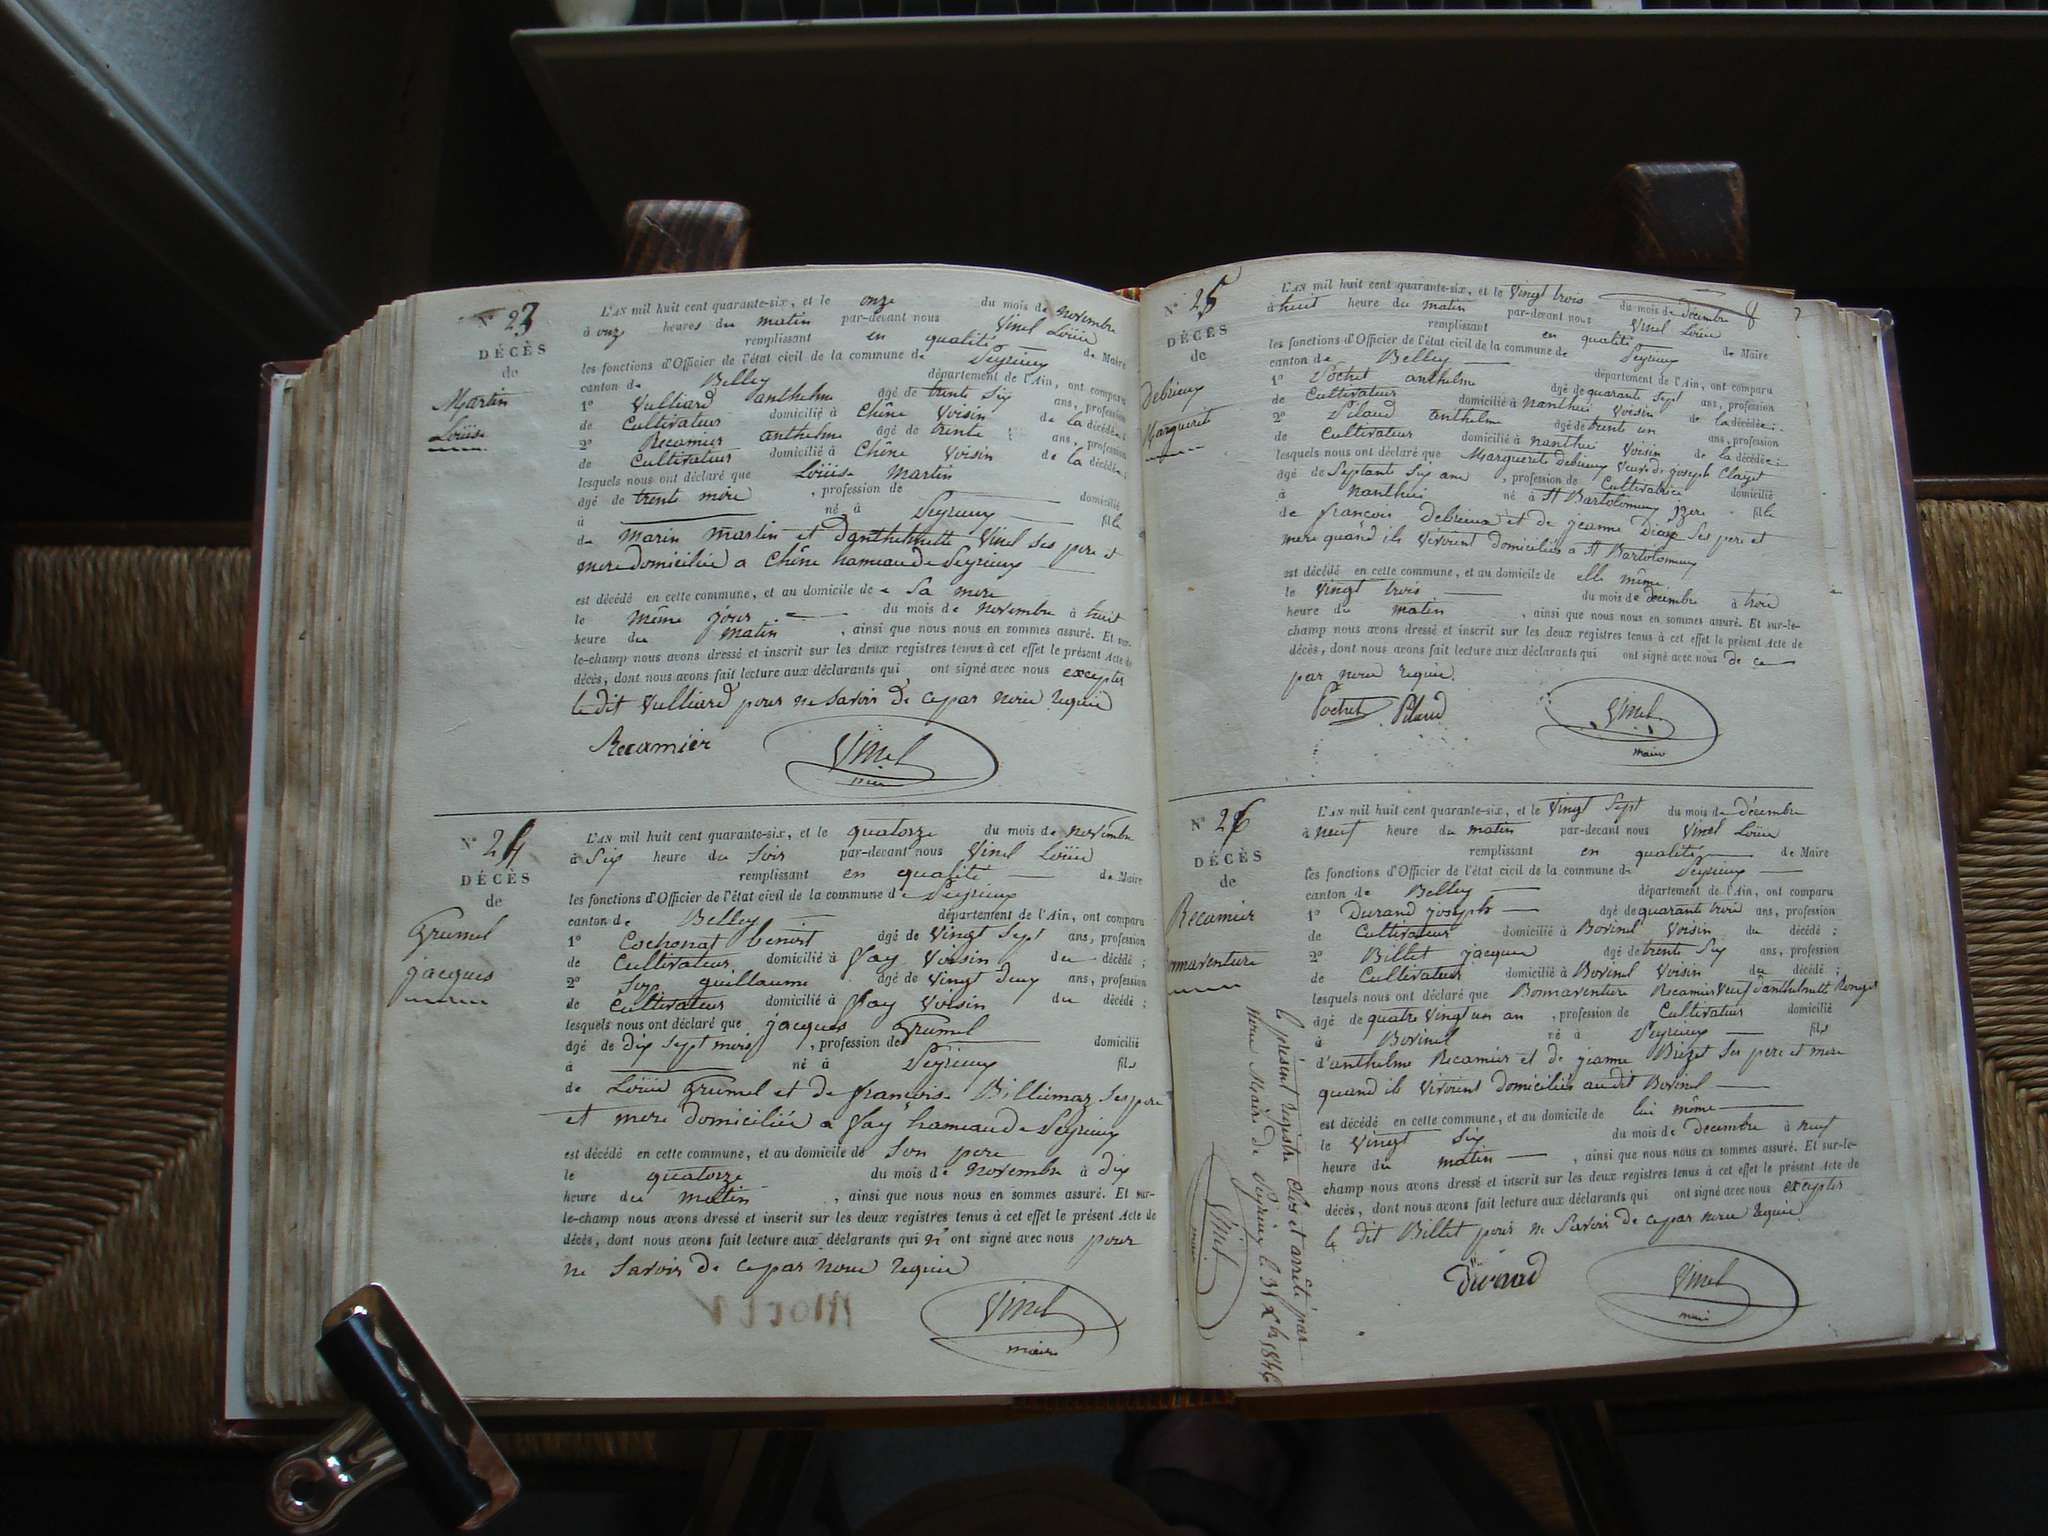 N° 23
DÉCÈS
de
Martin
Loüise
L'AN mil huit cent quarante-six, et le onze du mois de novembre
à onze heures du matin par-devant nous Vinel Loüis
remplissant en qualité de Maire
les fonctions d'Officier de l'état civil de la commune de Peyrieux
canton de Belley département de l'Ain, ont comparu
1° Vulliard anthelme âgé de trente six ans, profession
de Cultivateur domicilié à Chêne Voisin de la décédée ;
2° Recamier anthelme âgé de trente ans, profession
de Cultivateur domicilié à Chêne Voisin de la décédée ;
lesquels nous ont déclaré que Loüise Martin
âgé de trente mois , profession de domicilié
à né à Peyrieux fille
de Marin Martin et Vinel ses pere et
mere domicilié a Chêne hameau de Peyrieux
est décédé en cette commune, et au domicile de sa mere
le même jour du mois de novembre à huit
heure du matin , ainsi que nous nous en sommes assuré. Et sur-
le-champ nous avons dressé et inscrit sur les deux registres tenus à cet effet le présent Acte de
décès, dont nous avons fait lecture aux déclarants qui ont signé avec nous excepter
le dit Vulliard pour ne savoir de ce par nous requis
Recamier Vinel
maire
N° 24
DÉCÈS
de
Grumel
jacques
L'AN mil huit cent quarante-six, et le quatorze du mois de novembre
à six heure du soir par-devant nous Vinel Loüis
remplissant en qualité de Maire
les fonctions d'Officier de l'état civil de la commune de Peyrieux
canton de Belley département de l'Ain, ont comparu
1° Cochonat benoit âgé de vingt sept ans, profession
de Cultivateur domicilié à Fay Voisin du décédé ;
2° guillaume âgé de vingt deux ans, profession
de Cultivateur domicilié à Fay Voisin du décédé ;
lesquels nous ont déclaré que jacques Grumel
âgé de dix sept mois , profession de domicilié
à né à Peyrieux fils
de Loüis Grumel et de françoise Billiemaz ses pere
et mere domiciliés a Fay hameau de Peyrieux
est décédé en cette commune, et au domicile de son pere
le quatorze du mois de novembre à dix
heure du matin , ainsi que nous nous en sommes assuré. Et sur-
le-champ nous avons dressé et inscrit sur les deux registres tenus à cet effet le présent Acte de
décès, dont nous avons fait lecture aux déclarants qui n' ont signé avec nous pour
ne savoir de ce par nous requis
Vinel
maire
N° 25
DÉCÈS
de
Debrieux
Marguerite
8
L'AN mil huit cent quarante-six, et le vingt trois du mois de décembre
à huit heure du matin par-devant nous Vinel Loüis
remplissant en qualité de Maire
les fonctions d'Officier de l'état civil de la commune de Peyrieux
canton de Belley département de l'Ain, ont comparu
1° Pochet anthelme âgé de quarante sept ans, profession
de Cultivateur domicilié à nanthui Voisin de la décédée ;
2° Pilaud anthelme âgé de trente un ans, profession
de Cultivateur domicilié à nanthui Voisin de la décédée ;
lesquels nous ont déclaré que Marguerite debrieux Veuve de joseph Clayet
âgé de septante six ans , profession de Cultivatrice domicilié
à nanthui né à St Bartolomeux fille
de françois debrieux et de jeanne ses pere et
mere quand ils vivoient domiciliés a St Bartolomeux
est décédé en cette commune, et au domicile de elle même
le vingt trois du mois de decembre à trois
heure du matin , ainsi que nous nous en sommes assuré. Et sur-le-
champ nous avons dressé et inscrit sur les deux registres tenus à cet effet le présent Acte de
décès, dont nous avons fait lecture aux déclarants qui ont signé avec nous de ce
par nous requis.
Pochet Pilaud Vinel
maire
N° 26
DÉCÈS
de
Recamier
Bonnaventure
L'AN mil huit cent quarante-six, et le vingt sept du mois de décembre
à neuf heure du matin par-devant nous Vinel Loüis
remplissant en qualité de Maire
les fonctions d'Officier de l'état civil de la commune de Peyrieux
canton de Belley département de l'Ain, ont comparu
1° Durand joseph âgé de quarante trois ans, profession
de Cultivateur domicilié à Bovinel Voisin du décédé ;
2° Billet jacques âgé de trente six ans, profession
de Cultivateur domicilié à Bovinel Voisin du décédé ;
lesquels nous ont déclaré que Bonnaventure Recamier Veuf d'anthelmette Ronget
âgé de quatre vingt un an , profession de Cultivateur domicilié
à Bovinel né à Peyrieux fils
d'anthelme Recamier et de jeanne Brizet ses pere et mere
quand ils vivoient domiciliés audit Bovinel
est décédé en cette commune, et au domicile de lui même
le vingt six du mois de decembre à neuf
heure du matin , ainsi que nous nous en sommes assuré. Et sur-le-
champ nous avons dressé et inscrit sur les deux registres tenus à cet effet le présent Acte de
décès, dont nous avons fait lecture aux déclarants qui ont signé avec nous excepter
le dit Billet pour ne savoir de ce par nous requis
Durand Vinel
maire
le présent registre Clos et arrêté par
nous Maire de Peyrieux le 31 Xbre 1846
Vinel
maire